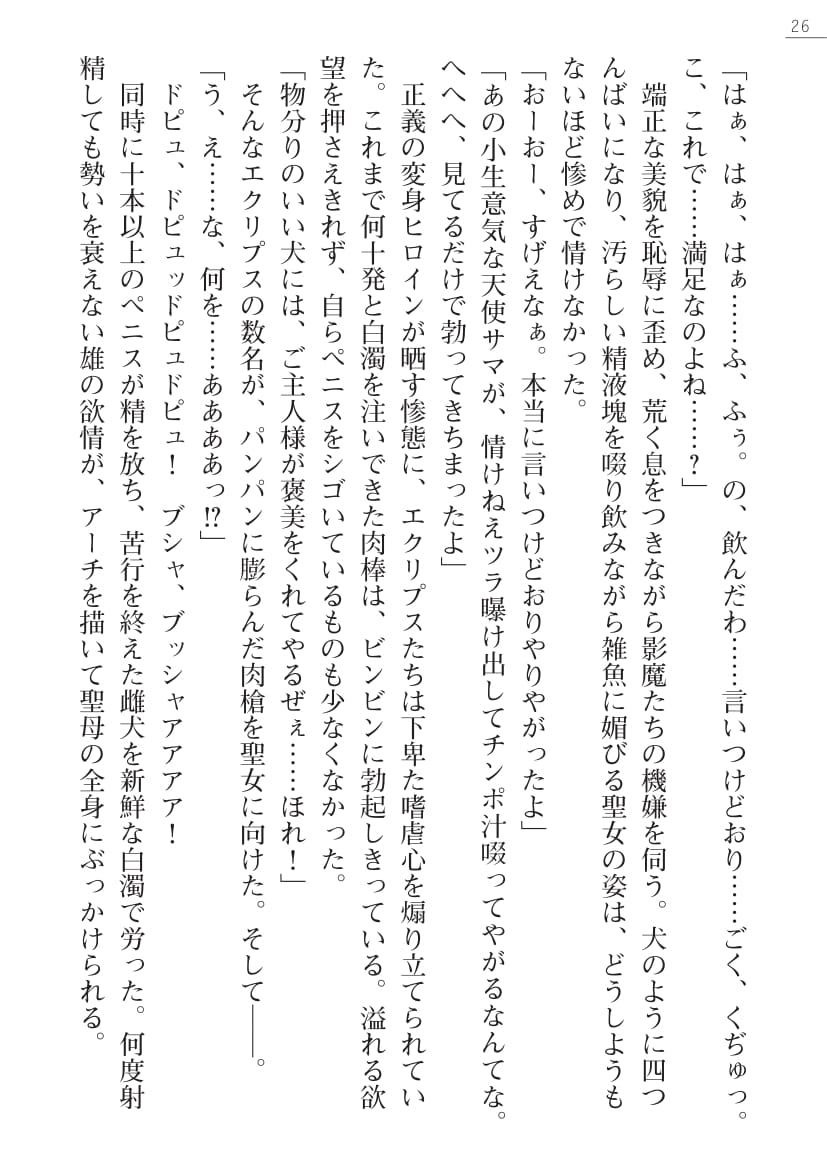 26
「はぁ、はぁ、はぁ……ふ、ふぅ。の、飲んだわ……言いつけどおり……ごく、くぢゅっ。
こ、これで……満足なのよね……？」
　端正な美貌を恥辱に歪め、荒く息をつきながら影魔たちの機嫌を伺う。犬のように四つ
んばいになり、汚らしい精液塊を啜り飲みながら雑魚に媚びる聖女の姿は、どうしようも
ないほど惨めで情けなかった。
「おーおー、すげえなぁ。本当に言いつけどおりやりやがったよ」
「あの小生意気な天使サマが、情けねえツラ曝け出してチンポ汁啜ってやがるなんてな。
へへへ、見てるだけで勃ってきちまったよ」
　正義の変身ヒロインが晒す惨態に、エクリプスたちは下卑た嗜虐心を煽り立てられてい
た。これまで何十発と白濁を注いできた肉棒は、ビンビンに勃起しきっている。溢れる欲
望を押さえきれず、自らペニスをシゴいているものも少なくなかった。
「物分りのいい犬には、ご主人様が褒美をくれてやるぜぇ……ほれ！」
　そんなエクリプスの数名が、パンパンに膨らんだ肉槍を聖女に向けた。そして――。
「う、え……な、何を……ああああっ!?」
　ドピュ、ドピュッドピュドピュ！　ブシャ、ブッシャアアアア！
　同時に十本以上のペニスが精を放ち、苦行を終えた雌犬を新鮮な白濁で労った。何度射
精しても勢いを衰えない雄の欲情が、アーチを描いて聖母の全身にぶっかけられる。